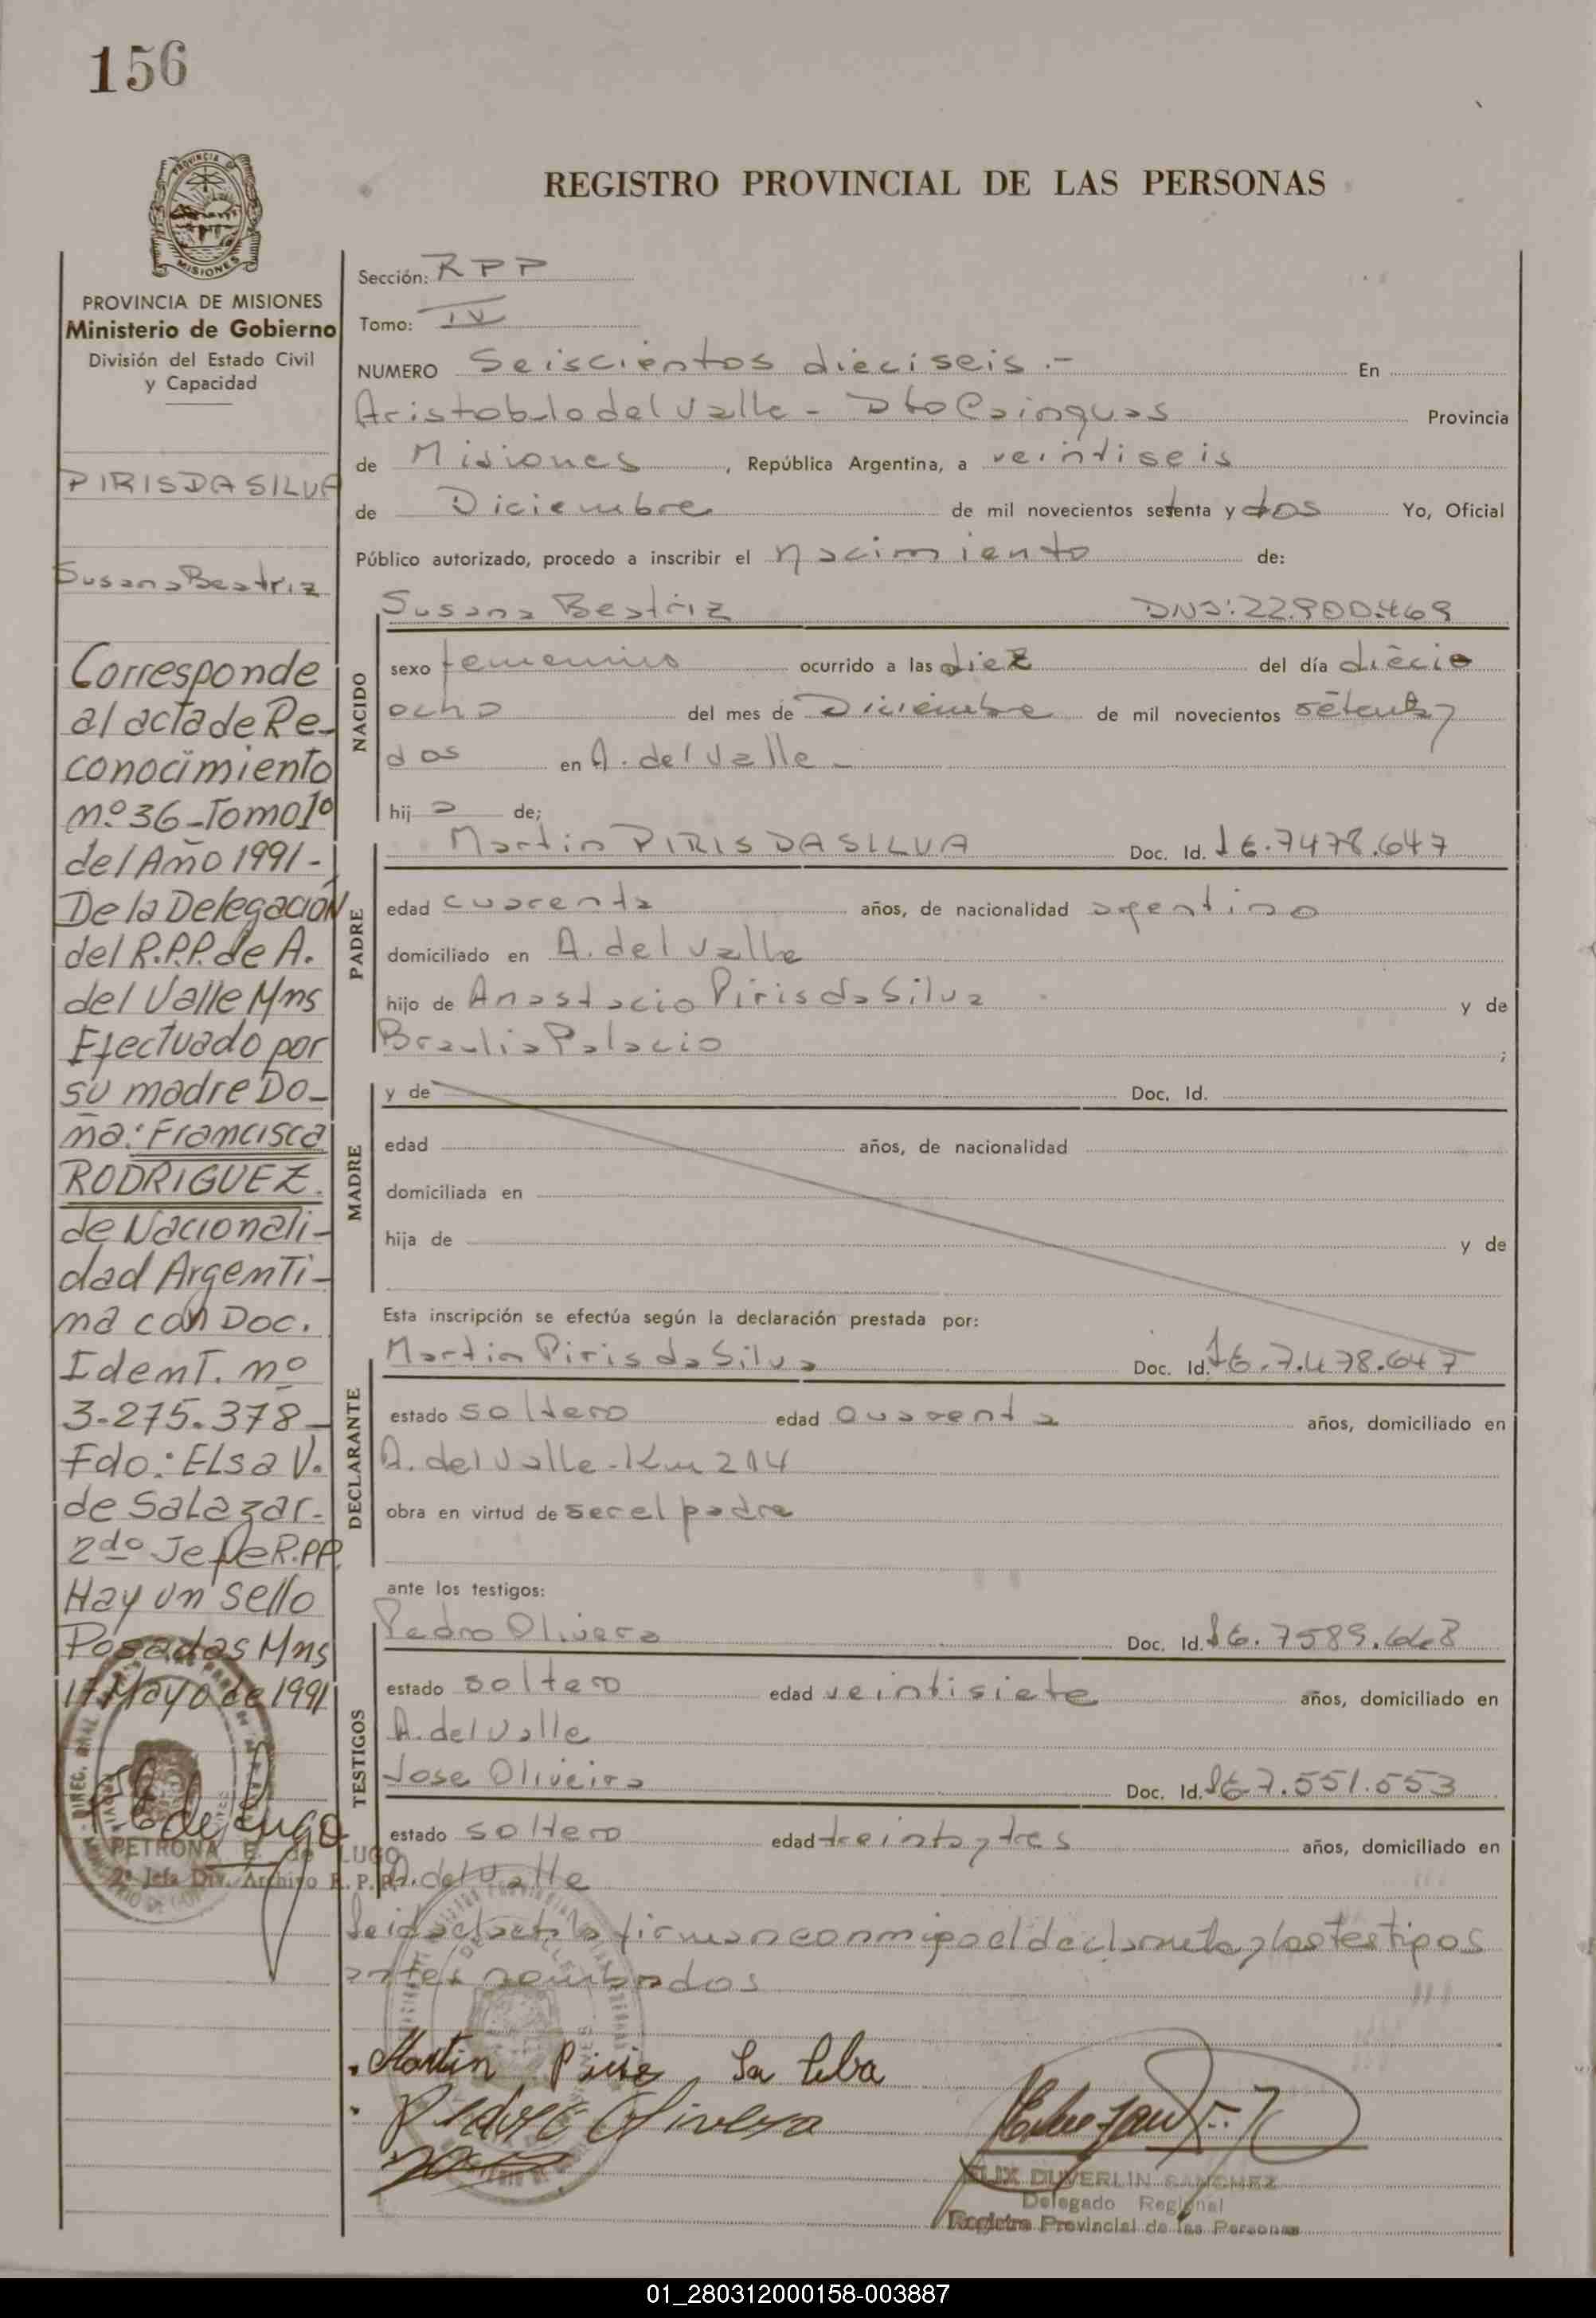 156
PROVINCIA DE MISIONES
REGISTRO PROVINCIAL DE LAS PERSONAS
PROVINCIA DE MISIONES
Ministerio de Gobierno
División del Estado Civil
y Capacidad
PIRIS DA SILVA
Susana Beatriz
Corresponde
al acta de Re-
conocimiento
nº 36-Tomo 1º
del Año 1991-
De la Delegación
del R.P.P. de A.
del Valle Mns
Efectuado por
su madre Do-
ña: Francisca
RODRIGUEZ.
de Nacionali-
dad Argenti-
na con Doc.
Ident. nº
3.275.378-
Fdo.: Elsa V.
de Salazar-
2do Jefe R.PP.
Hay un sello
Posadas Mns
17 Mayo de 1991
PETRONA E. de LUGO
2ª Jefa Div. Archivo R. P. P.
Sección: RPP
Tomo: IV
NUMERO Seiscientos dieciseis.- En
Aristobulo del Valle - Dto Cainguas Provincia
de Misiones, República Argentina, a veintiseis
de Diciembre de mil novecientos setenta y dos Yo, Oficial
Público autorizado, procedo a inscribir el nacimiento de:
NACIDO
Susana Beatriz DNI: 22.900.469
sexo femenino ocurrido a las diez del día diecio
ocho del mes de Diciembre de mil novecientos setenta y
dos en A. del Valle -
hija de;
PADRE
Martin PIRIS DA SILVA Doc. Id. 7478.647
edad cuarenta años, de nacionalidad argentino
domiciliado en A. del Valle
hijo de Anastacio Piris da Silva y de
Braulia Palacio ;
MADRE
y de Doc. Id.
edad años, de nacionalidad
domiciliada en
hija de y de
Esta inscripción se efectúa según la declaración prestada por:
DECLARANTE
Martin Piris da Silva Doc. Id. 7.478.647
estado soltero edad cuarenta años, domiciliado en
A. del Valle - Km 214
obra en virtud de ser el padre
ante los testigos:
TESTIGOS
Pedro Olivera Doc. Id. 7589.668
estado soltero edad veintisiete años, domiciliado en
A. del Valle
Jose Oliveira Doc. Id. 7.551.553
estado soltero edad treinta y tres años, domiciliado en
A. del Valle
Leida el acta la firman conmigo el declarante y los testigos
antes nombrados
Martin Piris Da Silva
Pedro Olivera
FELIX DUVERLIN SANCHEZ
Delegado Regional
Registro Provincial de las Personas
01_280312000158-003887